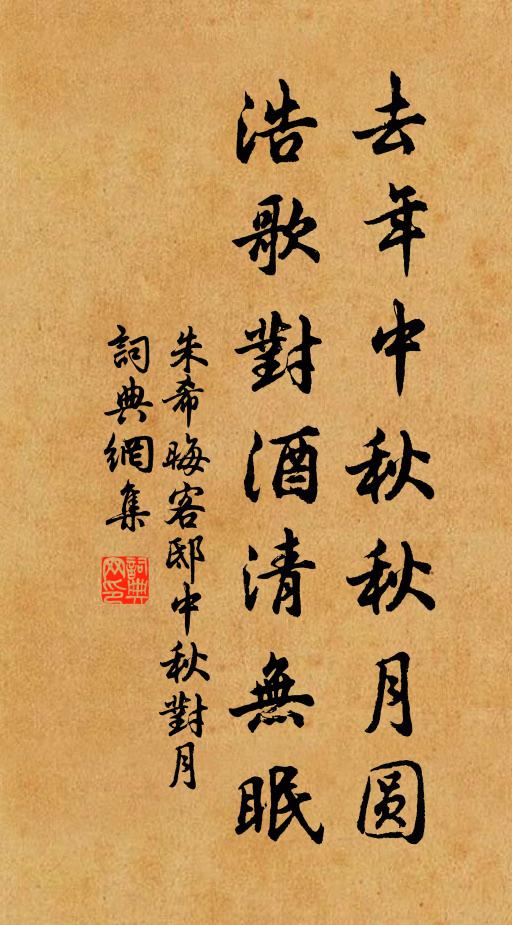 去年中秋秋月圆
浩歌對酒清無眠
朱希晦客邸中秋對月
詞典網集
詞典網印